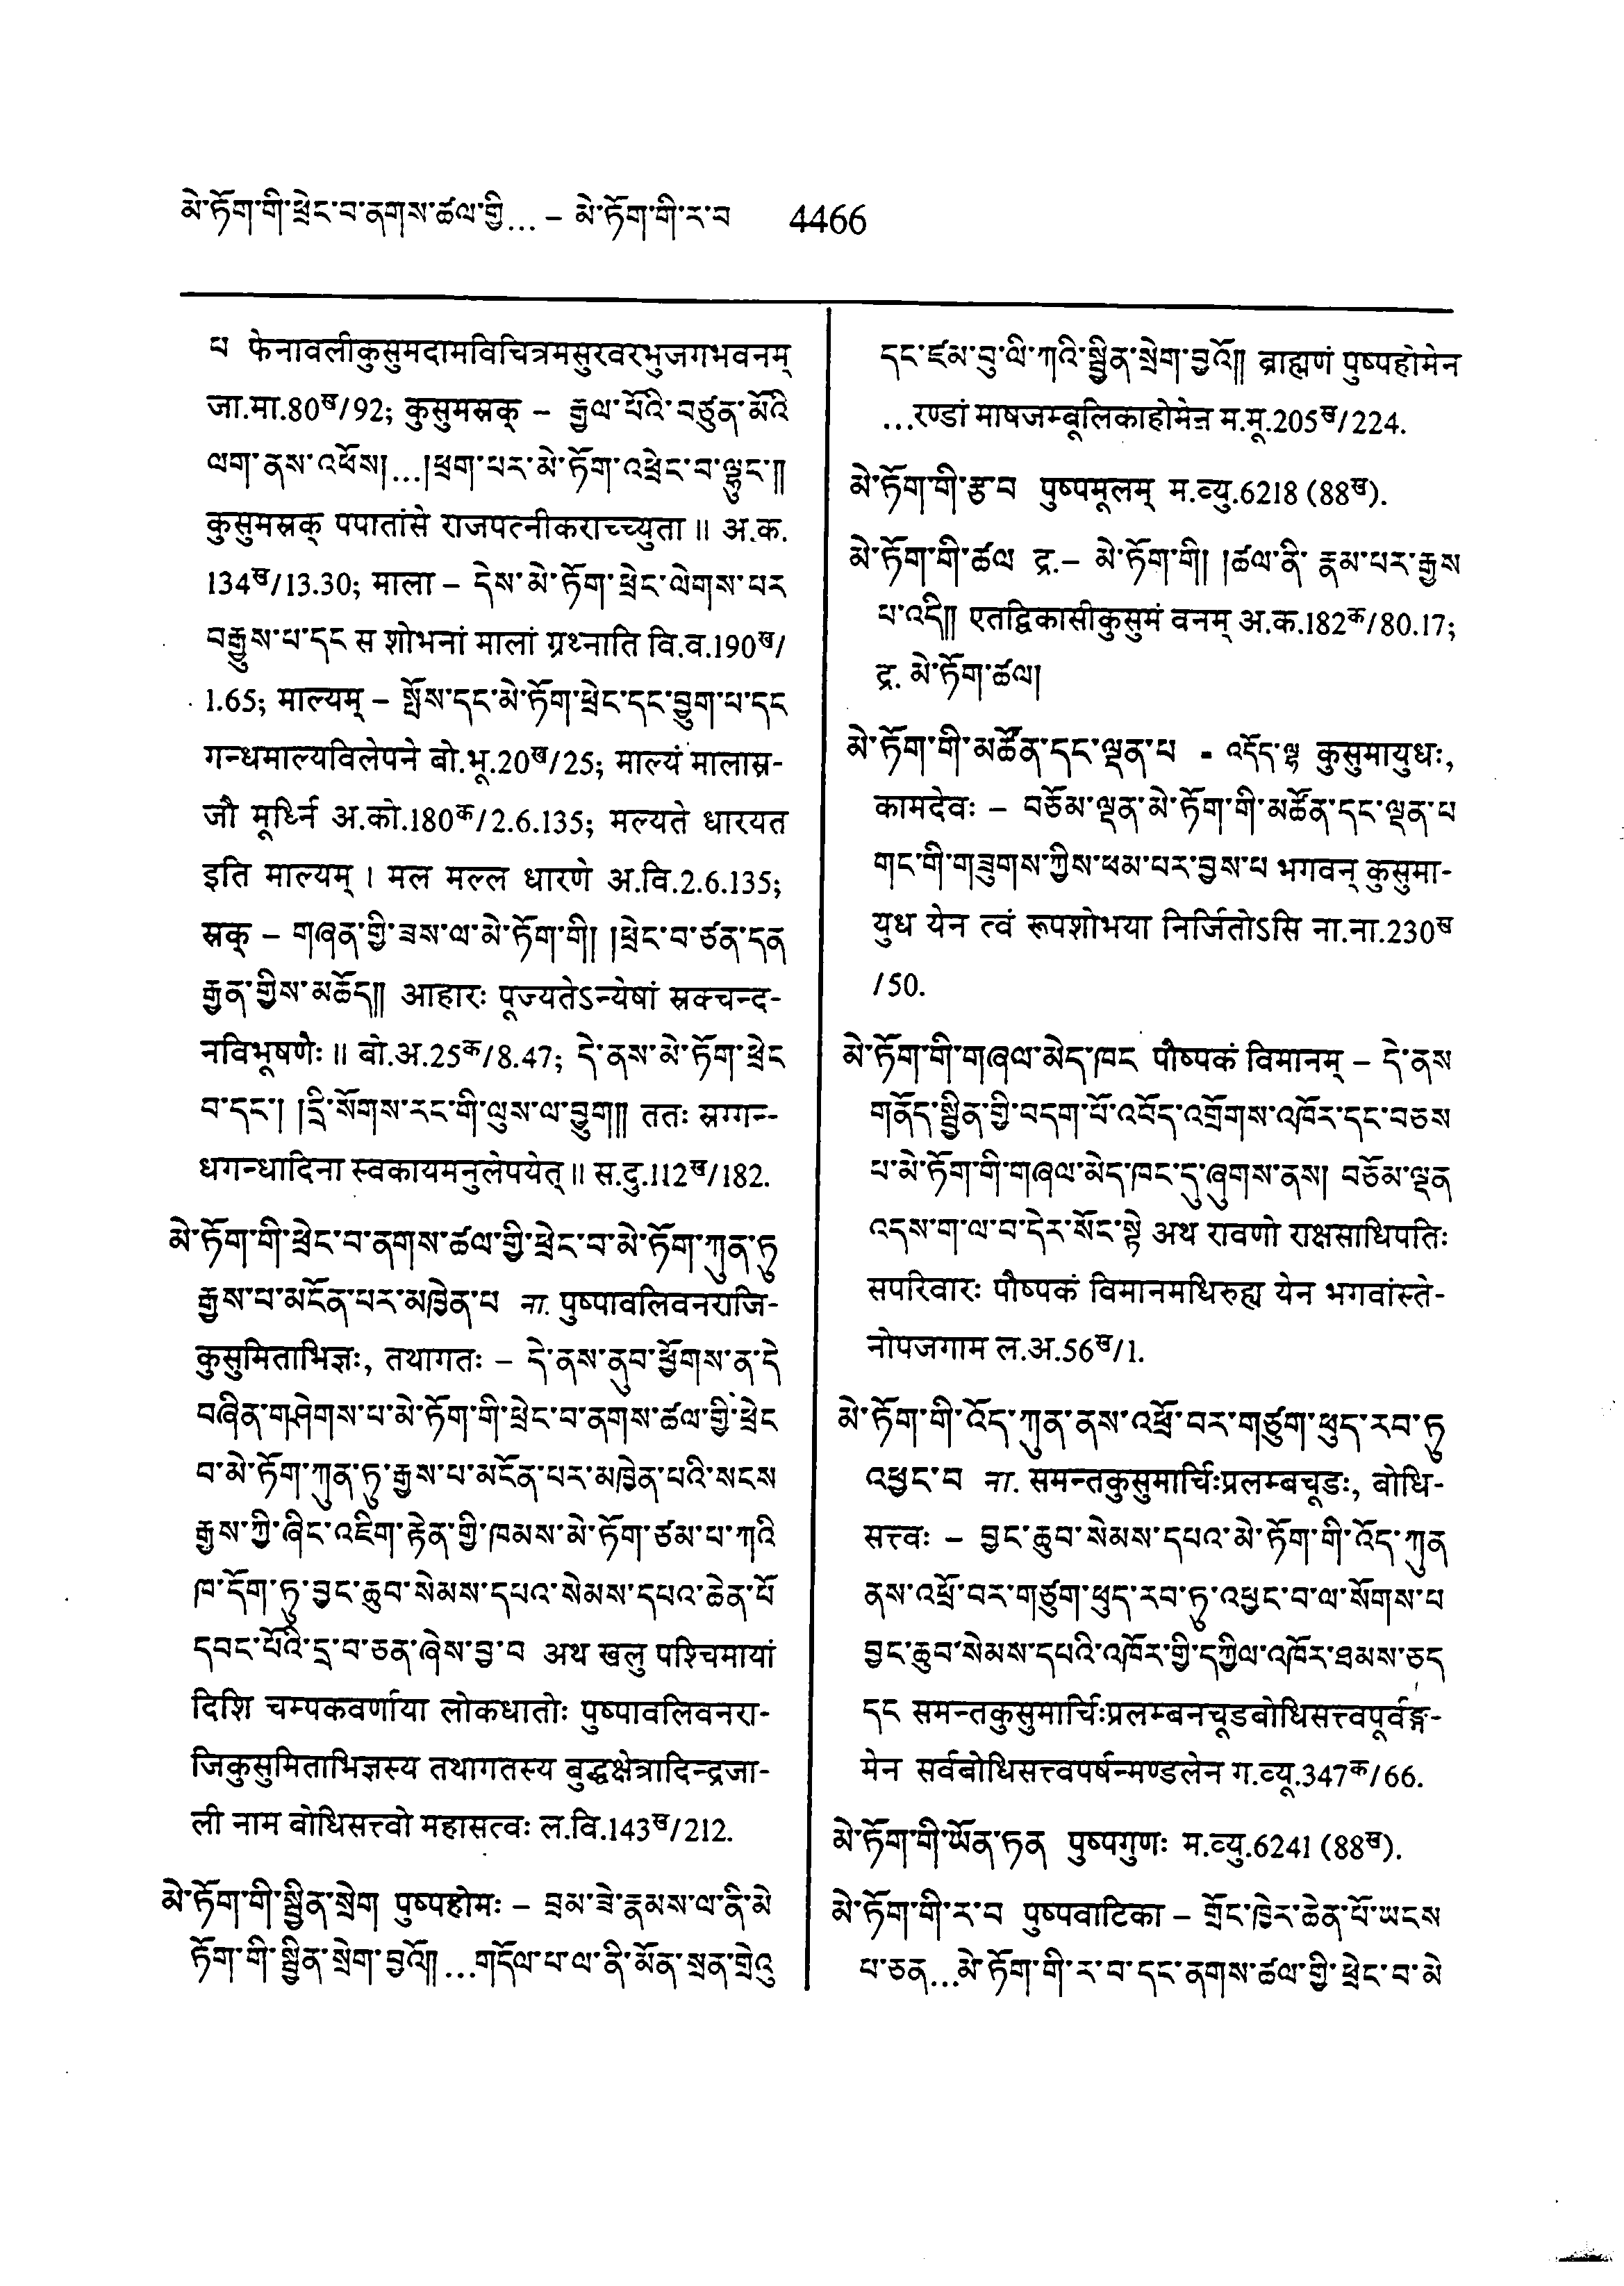 མེ་ཏོག་གི་ཕྲེང་བ་ནགས་ཚལ་གྱི... – མེ་ཏོག་གི་ར་བ 4466
པ फेनावलीकुसुमदामविचित्रमसुरवरभुजगभवनम्
जा.मा.80ख/92; कुसुमस्रक् – རྒྱལ་པོའི་བཙུན་མོའི
ལག་ནས་འཕོས།...།ཕྲག་པར་མེ་ཏོག་འཕྲེང་བ་ལྷུང་༎
कुसुमस्रक् पपातांसे राजपत्नीकराच्च्युता ॥ अ.क.
134ख/13.30; माला – དེས་མེ་ཏོག་ཕྲེང་ལེགས་པར
བརྒྱུས་པ་དང स शोभनां मालां ग्रथ्नाति वि.व.190ख/
1.65; माल्यम् – སྤོས་དང་མེ་ཏོག་ཕྲེང་དང་བྱུག་པ་དང
गन्धमाल्यविलेपने बो.भू.20ख/25; माल्यं मालास्र-
जौ मूर्ध्नि अ.को.180क/2.6.135; मल्यते धारयत
इति माल्यम् । मल मल्ल धारणे अ.वि.2.6.135;
स्रक् – གཞན་གྱི་ཟས་ལ་མེ་ཏོག་གི། །ཕྲེང་བ་ཙན་དན
རྒྱན་གྱིས་མཆོད༎ आहारः पूज्यतेऽन्येषां स्रक्चन्द-
नविभूषणैः ॥ बो.अ.25क/8.47; དེ་ནས་མེ་ཏོག་ཕྲེང
བ་དང་། །དྲི་སོགས་རང་གི་ལུས་ལ་བྱུག༎ ततः स्रग्गन्-
धगन्धादिना स्वकायमनुलेपयेत् ॥ स.दु.112ख/182.
མེ་ཏོག་གི་ཕྲེང་བ་ནགས་ཚལ་གྱི་ཕྲེང་བ་མེ་ཏོག་ཀུན་ཏུ
རྒྱས་པ་མངོན་པར་མཁྱེན་པ ना. पुष्पावलिवनराजि-
कुसुमिताभिज्ञः, तथागतः – དེ་ནས་ནུབ་ཕྱོགས་ན་དེ
བཞིན་གཤེགས་པ་མེ་ཏོག་གི་ཕྲེང་བ་ནགས་ཚལ་གྱི་ཕྲེང
བ་མེ་ཏོག་ཀུན་ཏུ་རྒྱས་པ་མངོན་པར་མཁྱེན་པའི་སངས
རྒྱས་ཀྱི་ཞིང་འཇིག་རྟེན་གྱི་ཁམས་མེ་ཏོག་ཙམ་པ་ཀའི
ཁ་དོག་ཏུ་བྱང་ཆུབ་སེམས་དཔའ་སེམས་དཔའ་ཆེན་པོ
དབང་པོའི་དྲ་བ་ཅན་ཞེས་བྱ་བ अथ खलु पश्चिमायां
दिशि चम्पकवर्णाया लोकधातोः पुष्पावलिवनरा-
जिकुसुमिताभिज्ञस्य तथागतस्य बुद्धक्षेत्रादिन्द्रजा-
ली नाम बोधिसत्त्वो महासत्वः ल.वि.143ख/212.
མེ་ཏོག་གི་སྦྱིན་སྲེག पुष्पहोमः – བྲམ་ཟེ་རྣམས་ལ་ནི་མེ
ཏོག་གི་སྦྱིན་སྲེག་བྱའོ༎ ...གདོལ་པ་ལ་ནི་མོན་སྲན་གྲེའུ
དང་ཛམ་བུ་ལི་ཀའི་སྦྱིན་སྲེག་བྱའོ༎ ब्राह्मणं पुष्पहोमेन
...रण्डां माषजम्बूलिकाहोमेन म.मू.205ख/224.
མེ་ཏོག་གི་རྩ་བ पुष्पमूलम् म.व्यु.6218 (88ख).
མེ་ཏོག་གི་ཚལ द्र.– མེ་ཏོག་གི། །ཚལ་ནི་རྣམ་པར་རྒྱས
པ་འདི༎ एतद्विकासीकुसुमं वनम् अ.क.182क/80.17;
द्र. མེ་ཏོག་ཚལ།
མེ་ཏོག་གི་མཚོན་དང་ལྡན་པ = འདོད་ལྷ कुसुमायुधः,
कामदेवः – བཅོམ་ལྡན་མེ་ཏོག་གི་མཚོན་དང་ལྡན་པ
གང་གི་གཟུགས་ཀྱིས་ཕམ་པར་བྱས་པ भगवन् कुसुमा-
युध येन त्वं रूपशोभया निर्जितोऽसि ना.ना.230ख
/50.
མེ་ཏོག་གི་གཞལ་མེད་ཁང पौष्पकं विमानम् – དེ་ནས
གནོད་སྦྱིན་གྱི་བདག་པོ་འབོད་འགྲོགས་འཁོར་དང་བཅས
པ་མེ་ཏོག་གི་གཞལ་མེད་ཁང་དུ་ཞུགས་ནས། བཅོམ་ལྡན
འདས་ག་ལ་བ་དེར་སོང་སྟེ अथ रावणो राक्षसाधिपतिः
सपरिवारः पौष्पकं विमानमधिरुह्य येन भगवांस्ते-
नोपजगाम ल.अ.56ख/1.
མེ་ཏོག་གི་འོད་ཀུན་ནས་འཕྲོ་བར་གཙུག་ཕུད་རབ་ཏུ
འཕྱང་བ ना. समन्तकुसुमार्चिःप्रलम्बचूडः, बोधि-
सत्त्वः – བྱང་ཆུབ་སེམས་དཔའ་མེ་ཏོག་གི་འོད་ཀུན
ནས་འཕྲོ་བར་གཙུག་ཕུད་རབ་ཏུ་འཕྱང་བ་ལ་སོགས་པ
བྱང་ཆུབ་སེམས་དཔའི་འཁོར་གྱི་དཀྱིལ་འཁོར་ཐམས་ཅད
དང समन्तकुसुमार्चिःप्रलम्बनचूडबोधिसत्त्वपूर्वङ्ग-
मेन सर्वबोधिसत्त्वपर्षन्मण्डलेन ग.व्यू.347क/66.
མེ་ཏོག་གི་ཡོན་ཏན पुष्पगुणः म.व्यु.6241 (88ख).
མེ་ཏོག་གི་ར་བ पुष्पवाटिका – གྲོང་ཁྱེར་ཆེན་པོ་ཡངས
པ་ཅན...མེ་ཏོག་གི་ར་བ་དང་ནགས་ཚལ་གྱི་ཕྲེང་བ་མེ